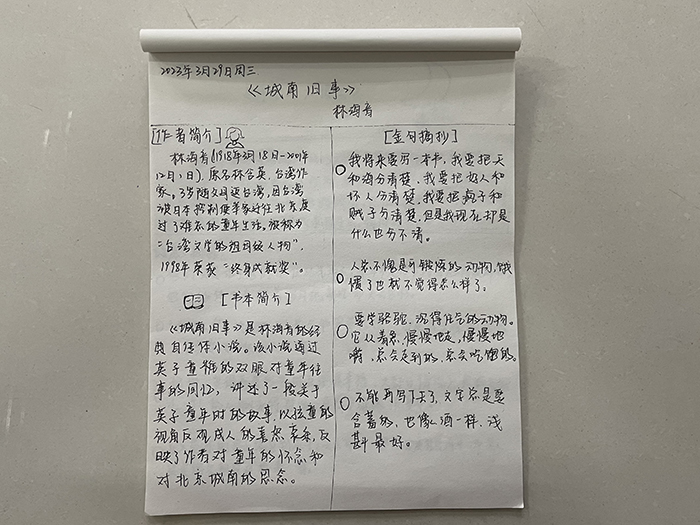 2023年3月29日周三
《城南旧事》
林海音
[作者简介]
林海音(1918年3月18日-2001年
12月1日),原名林含英,台湾作
家。3岁随父母返台湾,因台湾
被日本控制便举家迁往北京度
过了难忘的童年生活。被称为
“台湾文学的祖母级人物”,
1998年荣获“终身成就奖”。
[书本简介]
《城南旧事》是林海音的经
典自传体小说。该小说通过
英子童稚的双眼对童年往
事的回忆,讲述了一般关于
英子童年时的故事,以孩童的
视角反观成人的喜怒哀乐,反
映了作者对童年的怀念和
对北京城南的思念。
[金句摘抄]
我将来要写一本书,我要把天
和海分清楚,我要把好人和
坏人分清楚,我要把疯子和
贼子分清楚,但是我现在却是
什么也分不清。
人总不像是可锻炼的动物,饿
惯了也就不觉得怎么样了。
要学骆驼,沉得住气的动物。
它从不着急,慢慢地走,慢慢地
嚼,总会走到的,总会吃饱的。
不能再写下去了,文学总是要
含蓄的,也像酒一样,浅
斟最好。